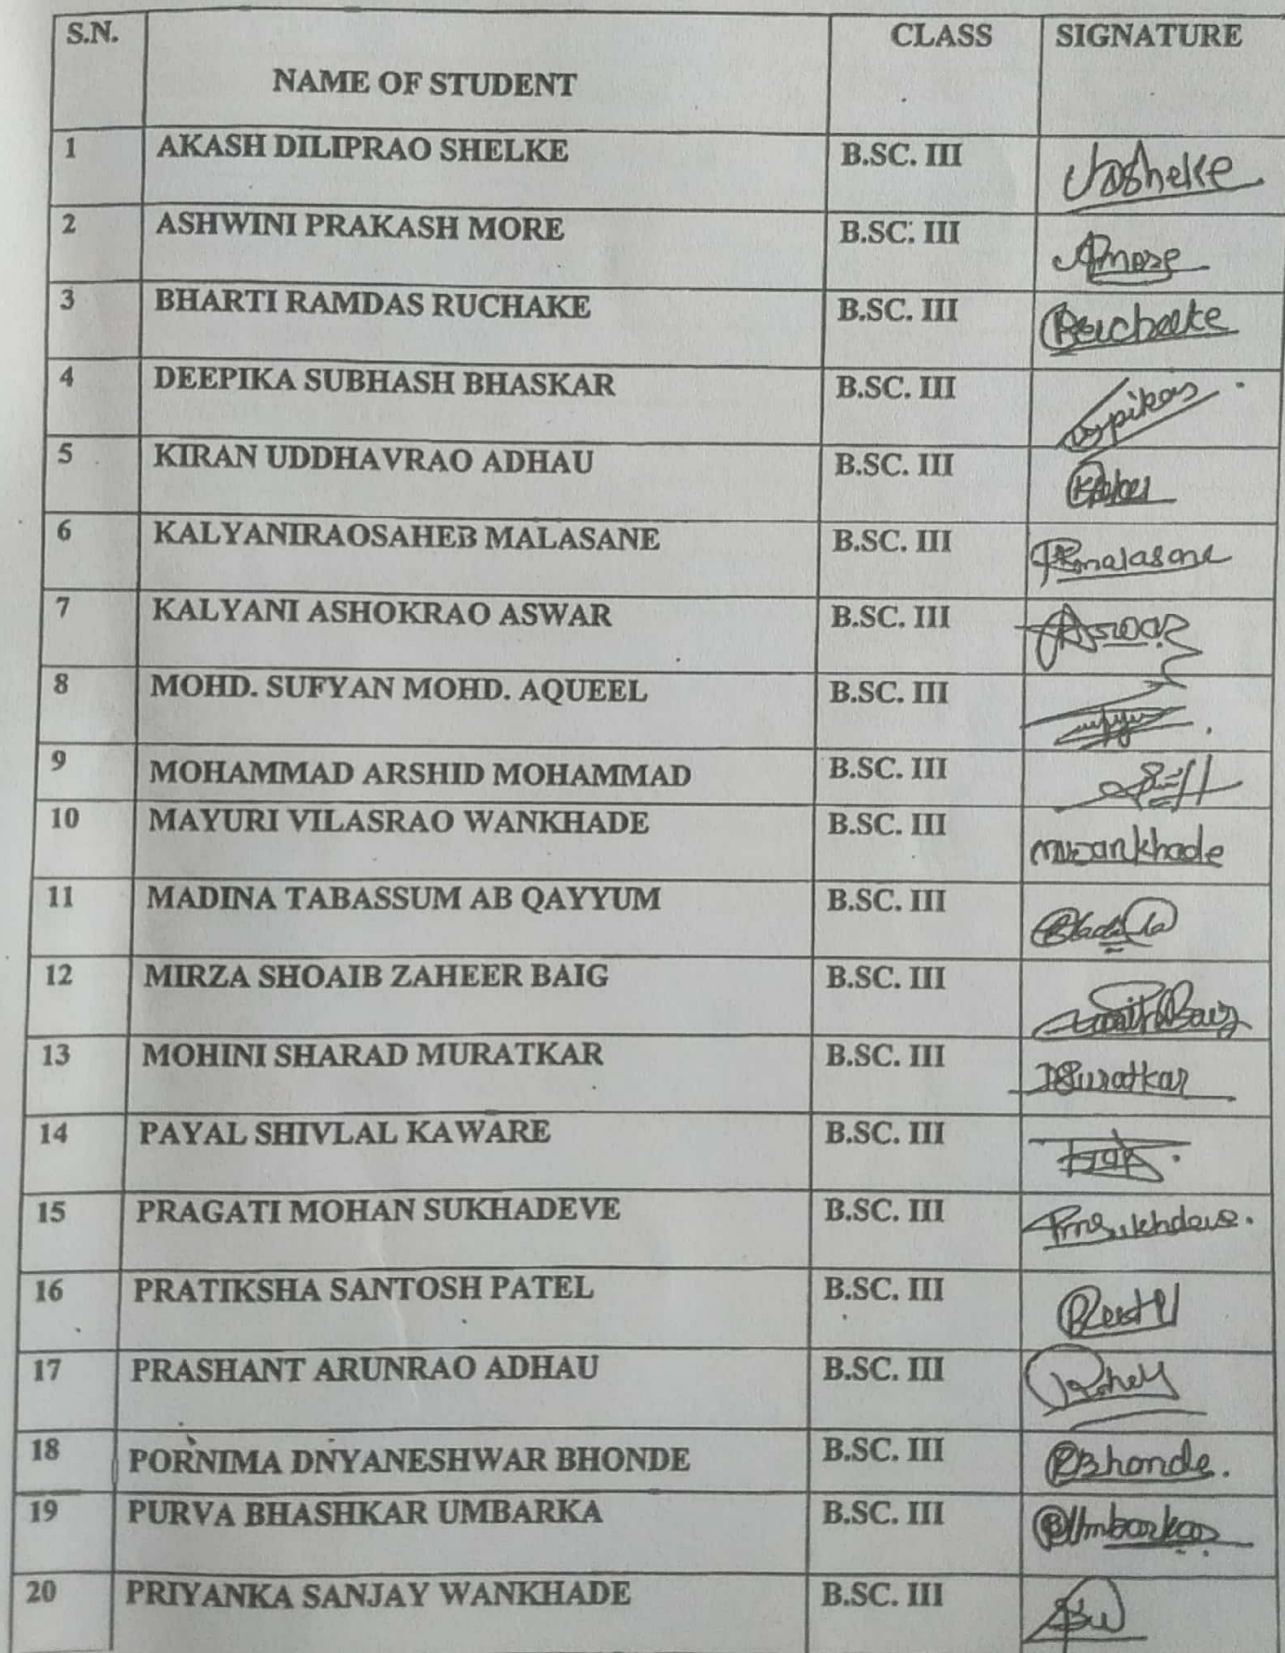 S.N. CLASS SIGNATURE
NAME OF STUDENT
1 AKASH DILIPRAO SHELKE B.SC. III
2 ASHWINI PRAKASH MORE B.SC. III Amore
3 BHARTI RAMDAS RUCHAKE B.SC. III
4 DEEPIKA SUBHASH BHASKAR B.SC. III
5 KIRAN UDDHAVRAO ADHAU B.SC. III
6 KALYANIRAOSAHEB MALASANE B.SC. III
7 KALYANI ASHOKRAO ASWAR B.SC. III
8 MOHD. SUFYAN MOHD. AQUEEL B.SC. III
9 MOHAMMAD ARSHID MOHAMMAD B.SC. III
10 MAYURI VILASRAO WANKHADE B.SC. III mvwankhade
11 MADINA TABASSUM AB QAYYUM B.SC. III
12 MIRZA SHOAIB ZAHEER BAIG B.SC. III
13 MOHINI SHARAD MURATKAR B.SC. III
14 PAYAL SHIVLAL KAWARE B.SC. III
15 PRAGATI MOHAN SUKHADEVE B.SC. III
16 PRATIKSHA SANTOSH PATEL B.SC. III
17 PRASHANT ARUNRAO ADHAU B.SC. III
18 PORNIMA DNYANESHWAR BHONDE B.SC. III PBhonde.
19 PURVA BHASHKAR UMBARKA B.SC. III
20 PRIYANKA SANJAY WANKHADE B.SC. III